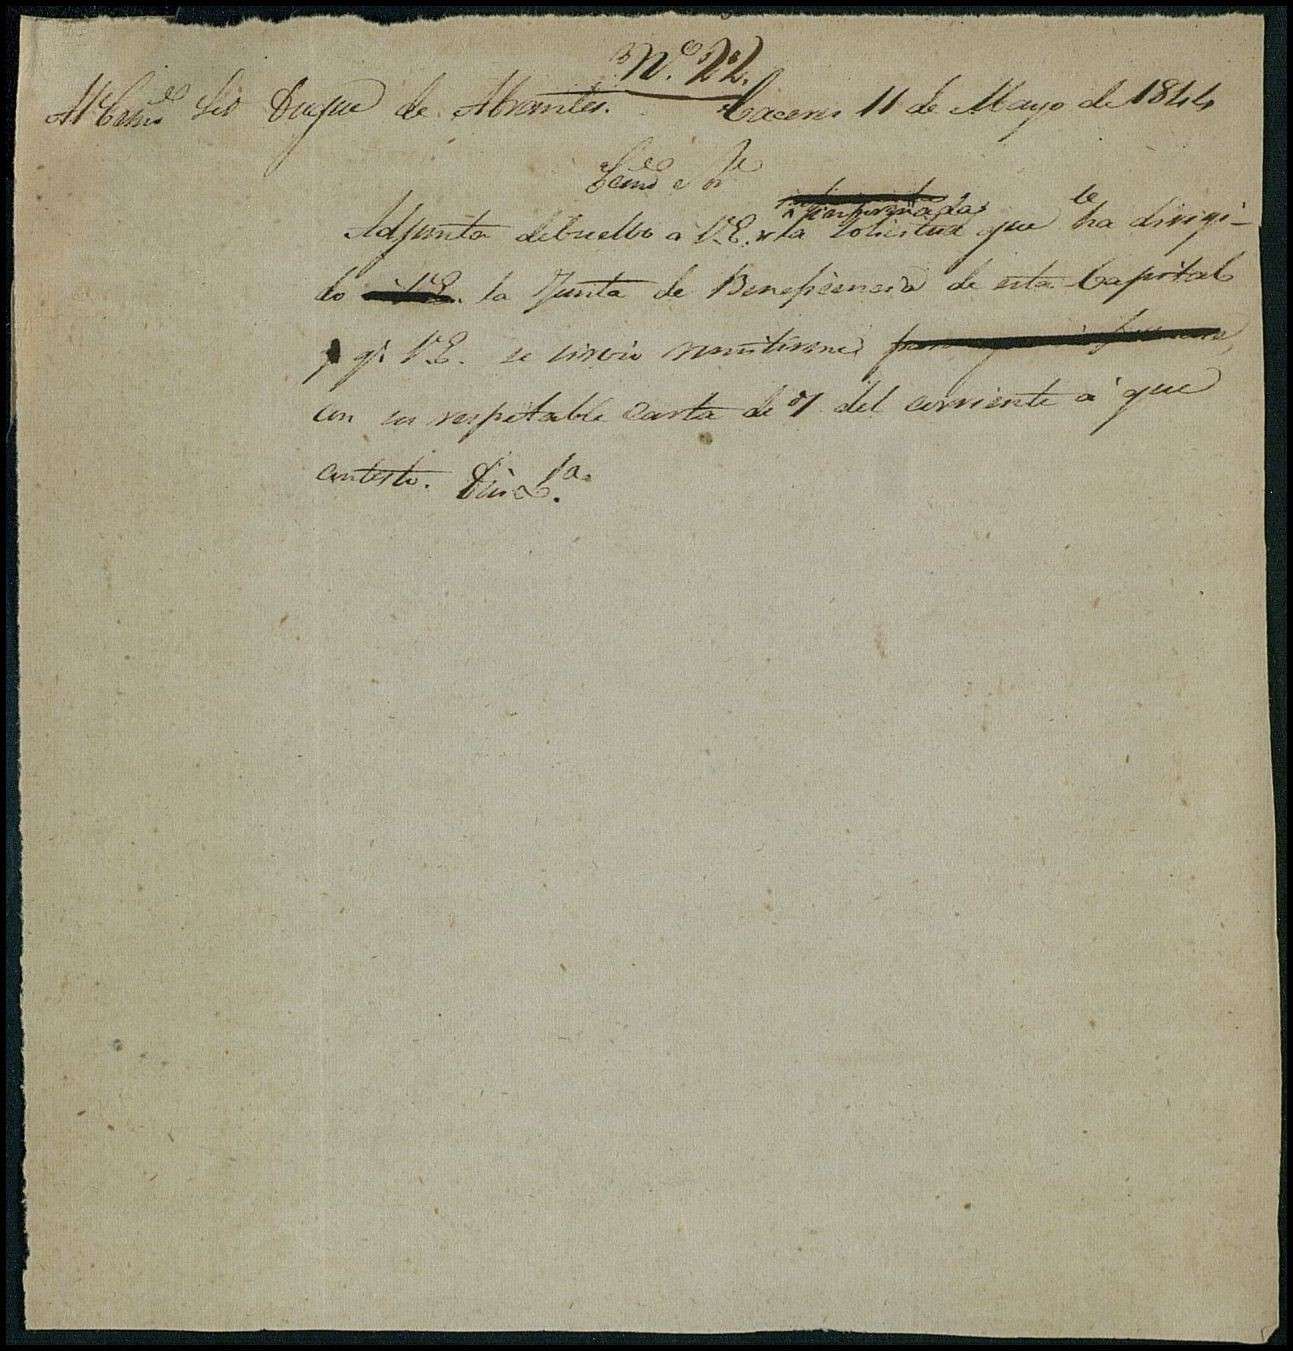 N.º 22.
Al Exmo Sor Duque de Abrantes. Caceres 11 de Mayo de 1844
Exmo Sor
informada
Adjunta debuelbo a V.E. la solicitud que le ha dirigi-
do a V.E. la Junta de Beneficencia de esta Capital
y q.e V.E. se sirvió remitirme
con su respetable carta de 7 del corriente á que
contesto. Dios &.a